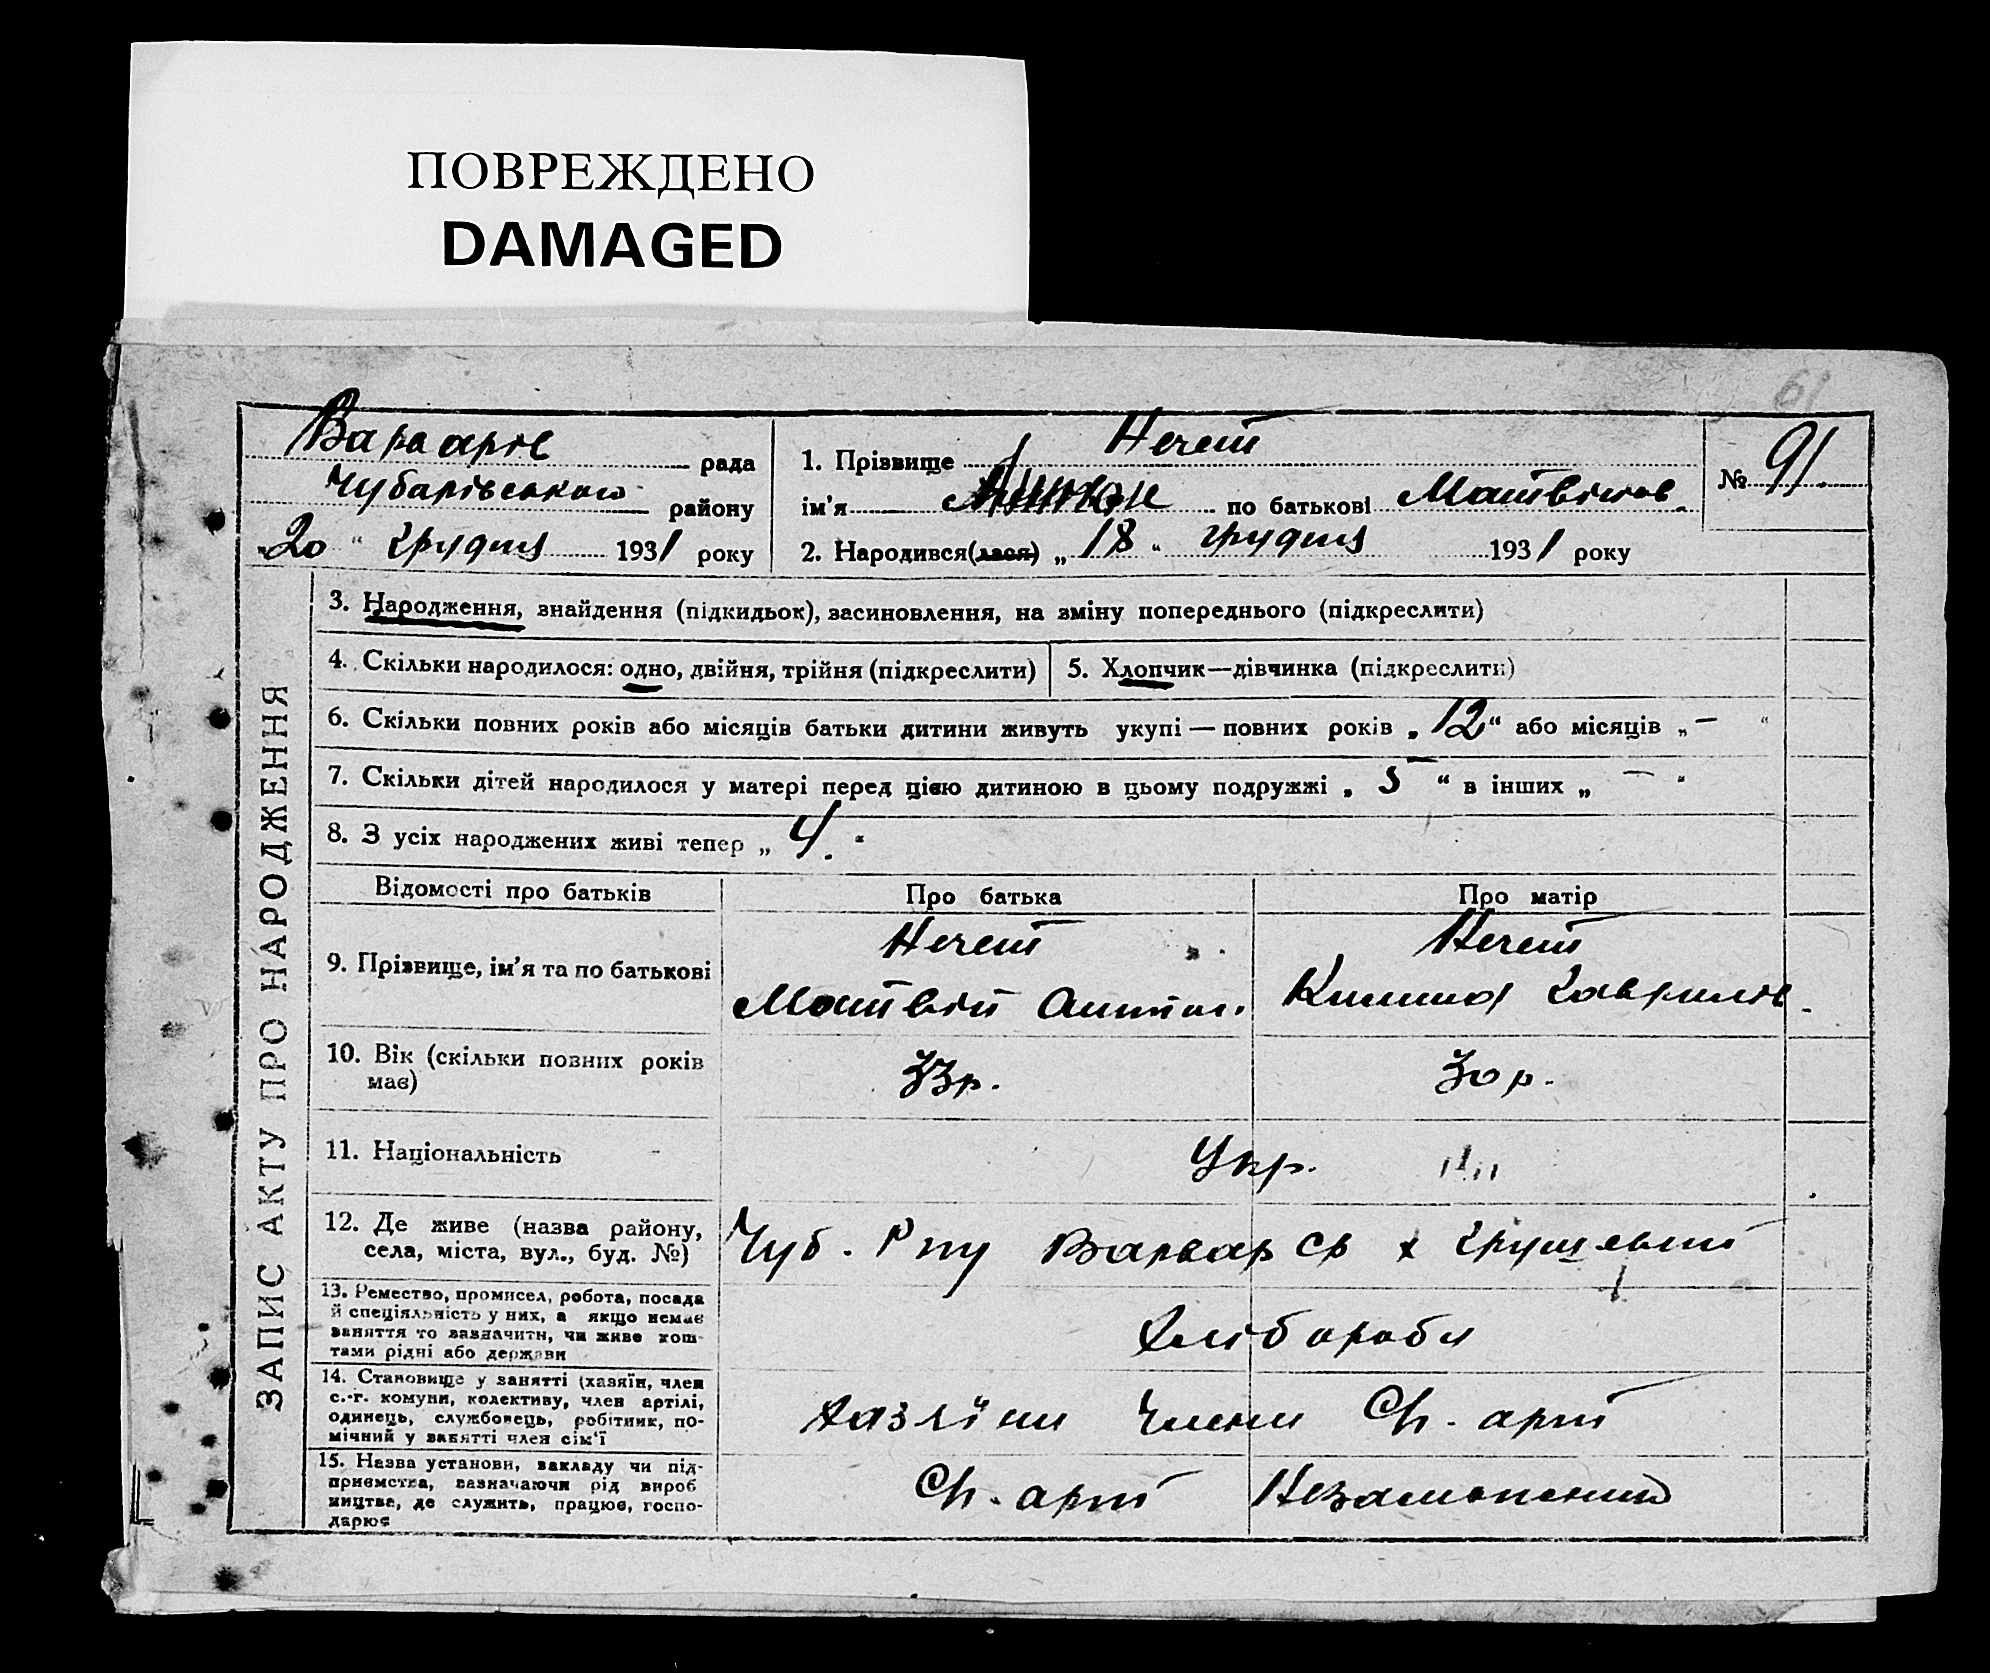 ПОВРЕЖДЕНО
DAMAGED
61
Варварів рада
Чубарівського району
„20“ грудня 1931 року
1. Прізвище Нечет
ім'я по батькові Матвійов.
2. Народився(лася) „18“ грудня 1931 року
№ 91.
ЗАПИС АКТУ ПРО НАРОДЖЕННЯ
3. Народження, знайдення (підкидьок), засиновлення, на зміну попереднього (підкреслити)
4. Скільки народилося: одно, двійня, трійня (підкреслити)
5. Хлопчик—дівчинка (підкреслити)
6. Скільки повних років або місяців батьки дитини живуть укупі — повних років „12“ або місяців „—“
7. Скільки дітей народилося у матері перед цією дитиною в цьому подружжі „5“ в інших „—“
8. З усіх народжених живі тепер „4.“
Відомості про батьків
Про батька
Про матір
9. Прізвище, ім'я та по батькові
Нечет
Матвій Антон.
Нечет
Гаврилів.
10. Вік (скільки повних років має)
33р.
30 р.
11. Національність
Укр.
12. Де живе (назва району,
села, міста, вул., буд. №)
Чуб. Рну Варвар Ср х Грушевий
13. Ремество, промисел, робота, посада
й спеціяльність у них, а якщо немає
заняття то зазначити, чи живе кош-
тами рідні або держави
Хлібороби
14. Становище у занятті (хазяїн, член
с.-г. комуни, колективу, член артілі,
одинець, службовець, робітник, по-
мічний у занятті член сім'ї
Хазяїни Члени Сг. арт
15. Назва установи, закладу чи під-
приємства, зазначаючи рід вироб
ництва, де служить, працює, госпо-
дарює
Сг. арт Незаможний